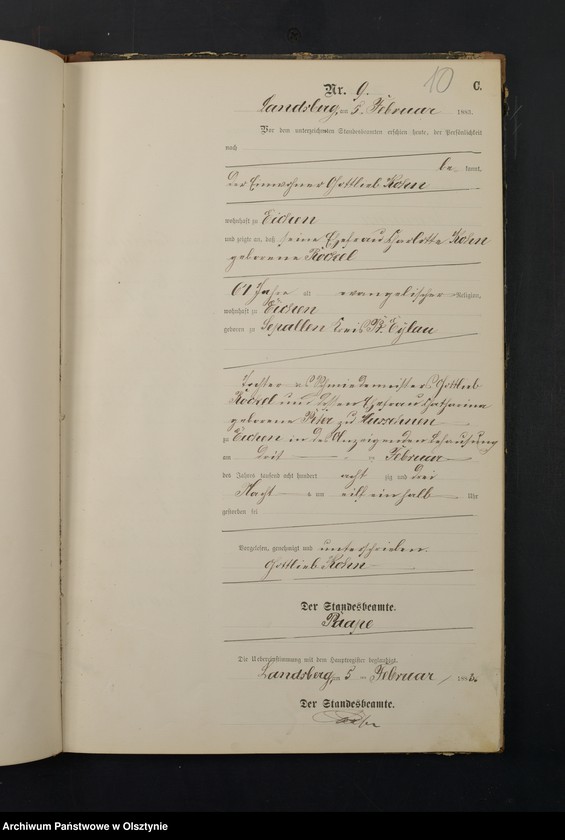 10
C.
Nr. 9.
Landsberg, am 5. Februar 1883.
Vor dem unterzeichneten Standesbeamten erschien heute, der Persönlichkeit
nach
be kannt,
der Einwohner Gottlieb Kohn
wohnhaft zu Eichen
und zeigte an, daß seine Ehefrau Charlotte Kohn
geborene
61 Jahre alt evangelischer Religion,
wohnhaft zu Eichen
geboren zu Kreis Pr. Eylau
Tochter des Schmiedemeisters Gottlieb
und dessen Ehefrau Catharina
geborene zu
zu Eichen in des Anzeigenden Behausung
am drit ten Februar
des Jahres tausend acht hundert acht zig und drei
Nacht s um eilf einhalb Uhr
gestorben sei
Vorgelesen, genehmigt und unterschrieben.
Gottlieb Kohn
Der Standesbeamte.
Die Uebereinstimmung mit dem Hauptregister beglaubigt.
Landsberg, am 5 ten Februar 188
Der Standesbeamte.
Archiwum Państwowe w Olsztynie